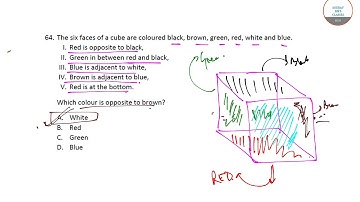 64. The six faces of a cube are coloured black, brown, green, red, white and blue.
I. Red is opposite to black,
II. Green in between red and black,
III. Blue is adjacent to white,
IV. Brown is adjacent to blue,
V. Red is at the bottom.
Which colour is opposite to brown?
A. White
B. Red
C. Green
D. Blue
Green
Black
RED